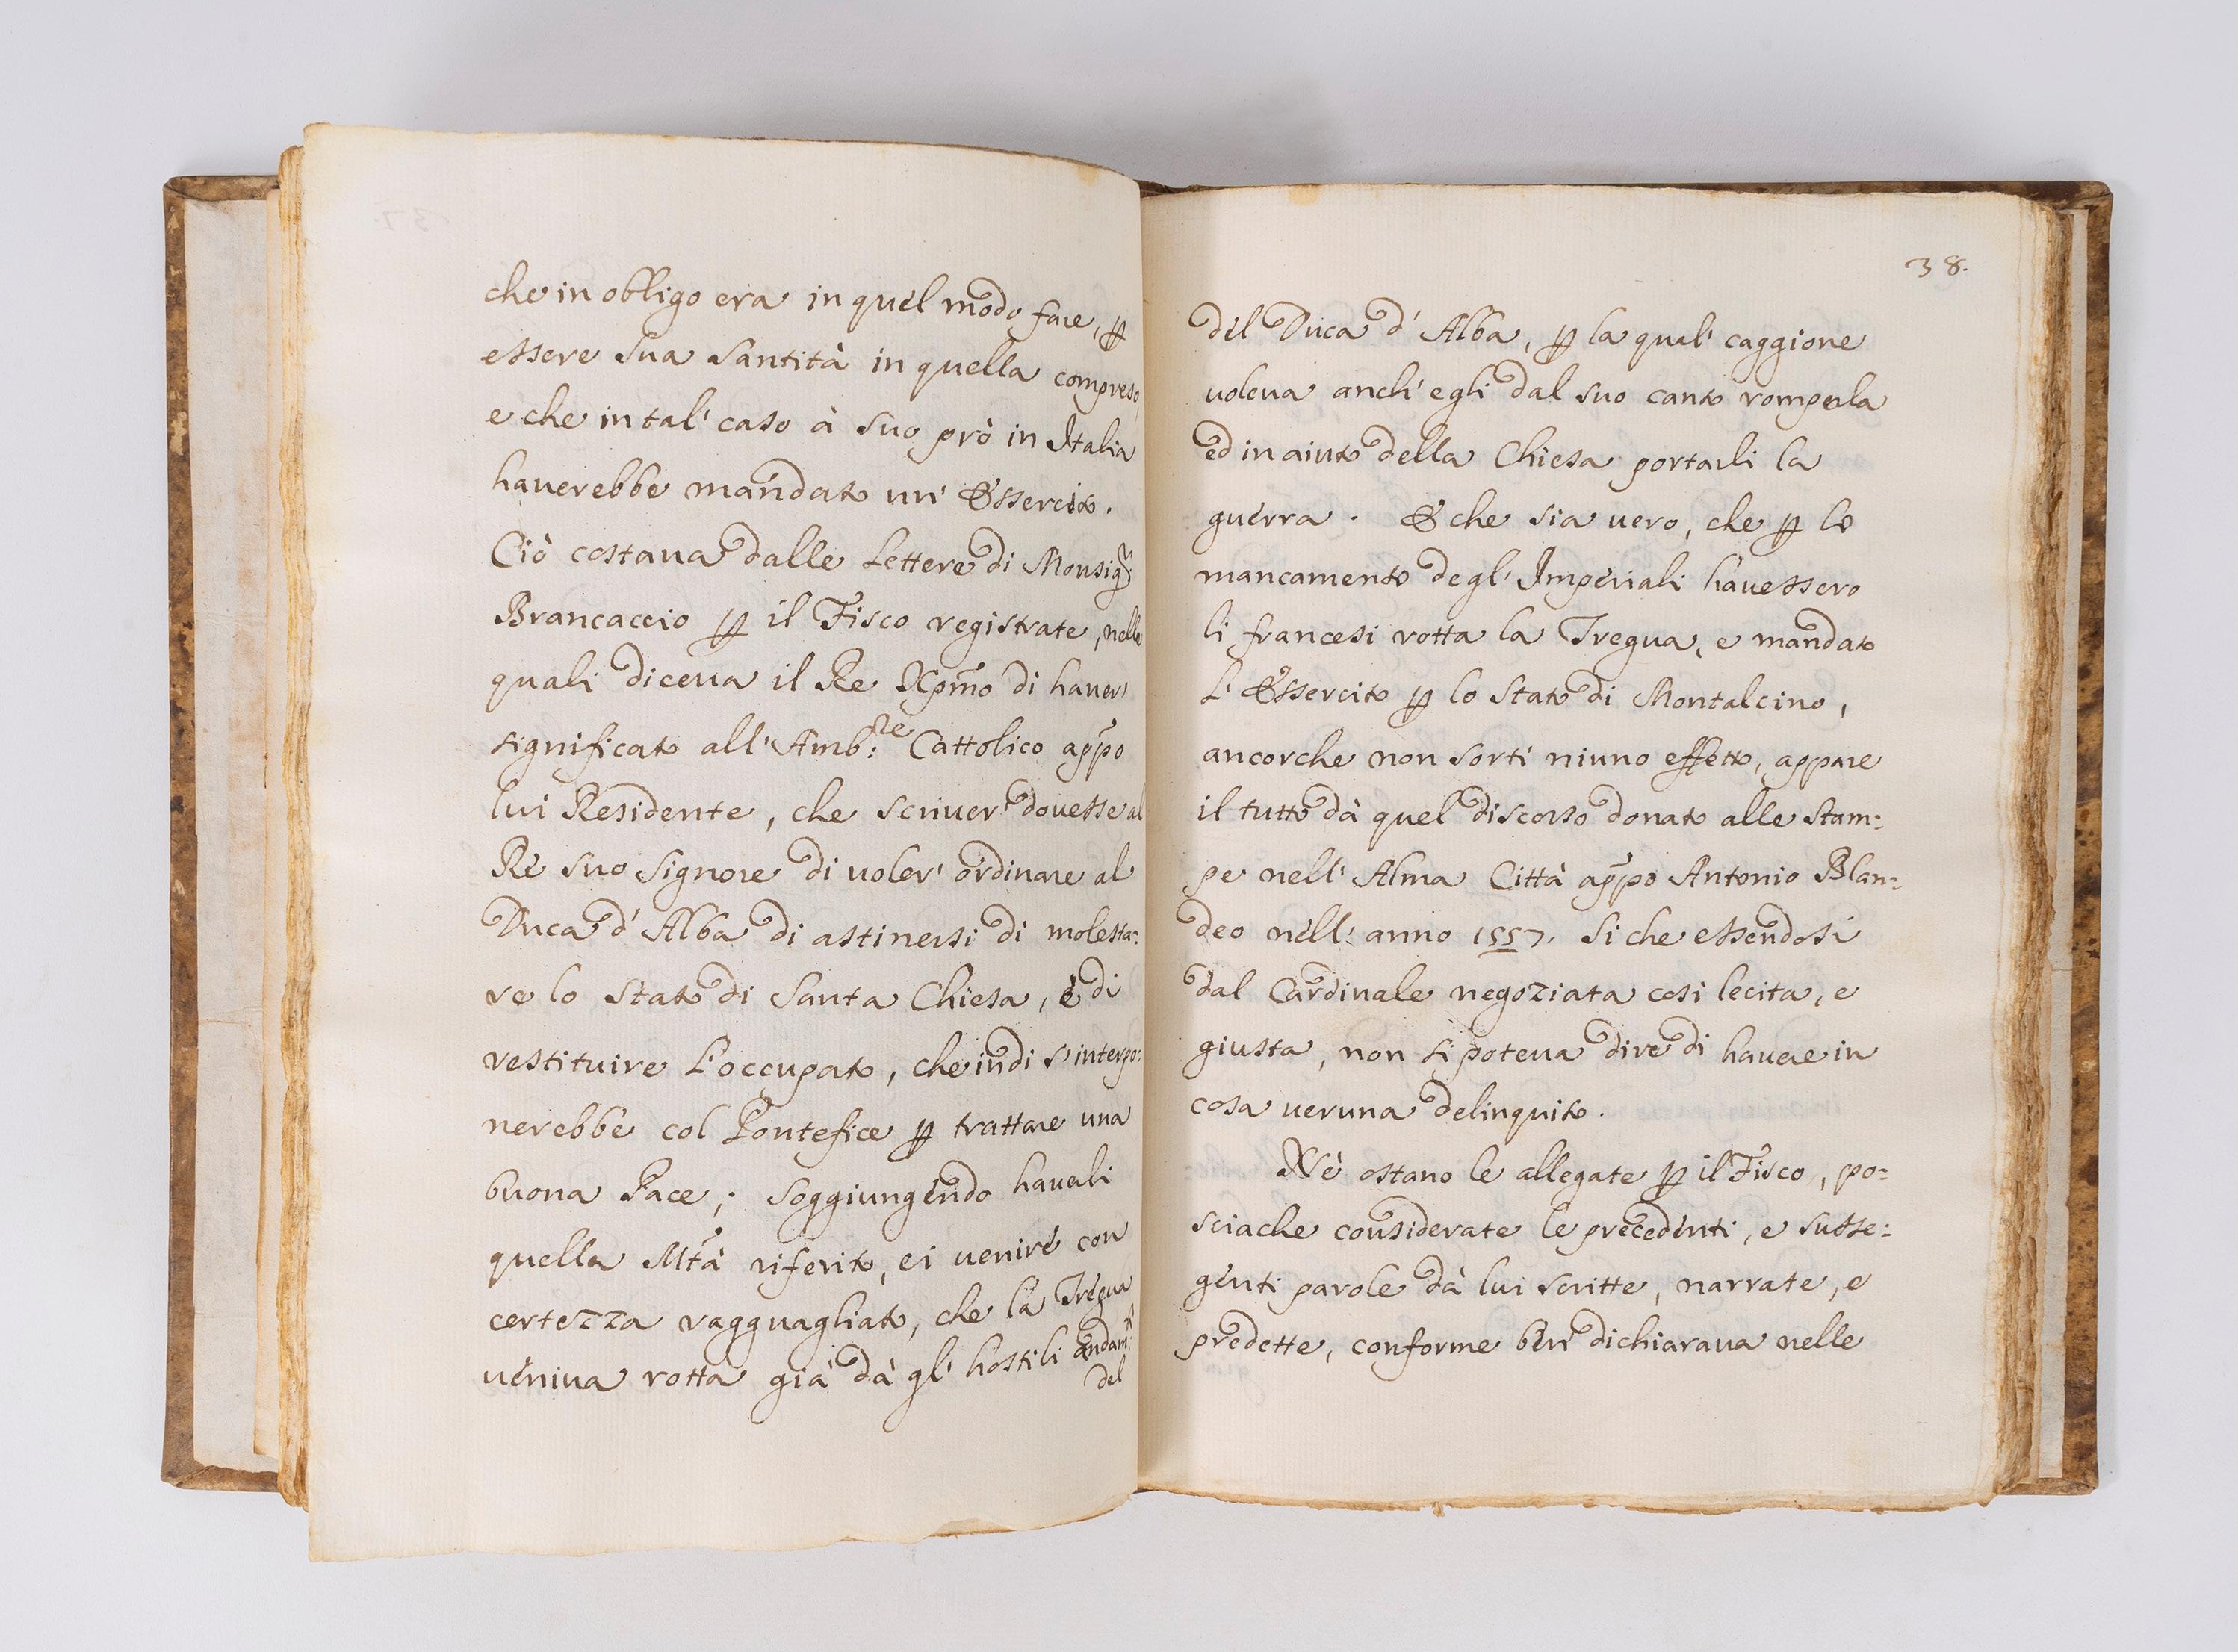 che in obligo era in quel modo fare, ꝑ
essere Sua Santità in quella compreso,
e che in tal' caso à suo prò in Italia
hauerebbe mandato un' Essercito.
Ciò costaua dalle Lettere di Monsig.r
Brancaccio ꝑ il Fisco registrate, nelle
quali diceua il Re Xp̃mo di hauer'
significato all' Amb:re Cattolico app̃o
lui Residente, che scriuer' douesse al
Rè suo Signore di uoler' ordinare al
Duca d' Alba di astinersi di molesta:
re lo Stato di Santa Chiesa, è di
restituire l'occupato, che indi s' interpo:
nerebbe col Pontefice ꝑ trattare una
buona Pace; soggiungendo hauerli
quella Mtà riferito, ei uenire con
certezza ragguagliato, che la Tregua
ueniua rotta già dà gl' hostili andam:ti
del
38.
del Duca d' Alba, ꝑ la qual' caggione
uoleua anch' egli dal suo canto romperla
ed in aiuto della Chiesa portarli la
guerra. E che sia uero, che ꝑ lo
mancamento degl' Imperiali hauessero
li francesi rotta la Tregua, e mandato
l' Essercito ꝑ lo Stato di Montalcino,
ancorche non sortì niuno effetto, appare
il tutto dà quel discorso donato alle Stam:
pe nell' Alma Città app̃o Antonio Blan:
deo nell' anno 1557. Si che essendosi
dal Cardinale negoziata cosi lecita, e
giusta, non si poteua dire di hauere in
cosa ueruna delinquito.
Nè ostano le allegate ꝑ il Fisco, po:
sciache considerate le precedenti, e susse:
genti parole dà lui scritte, narrate, e
predette, conforme ben' dichiaraua nelle